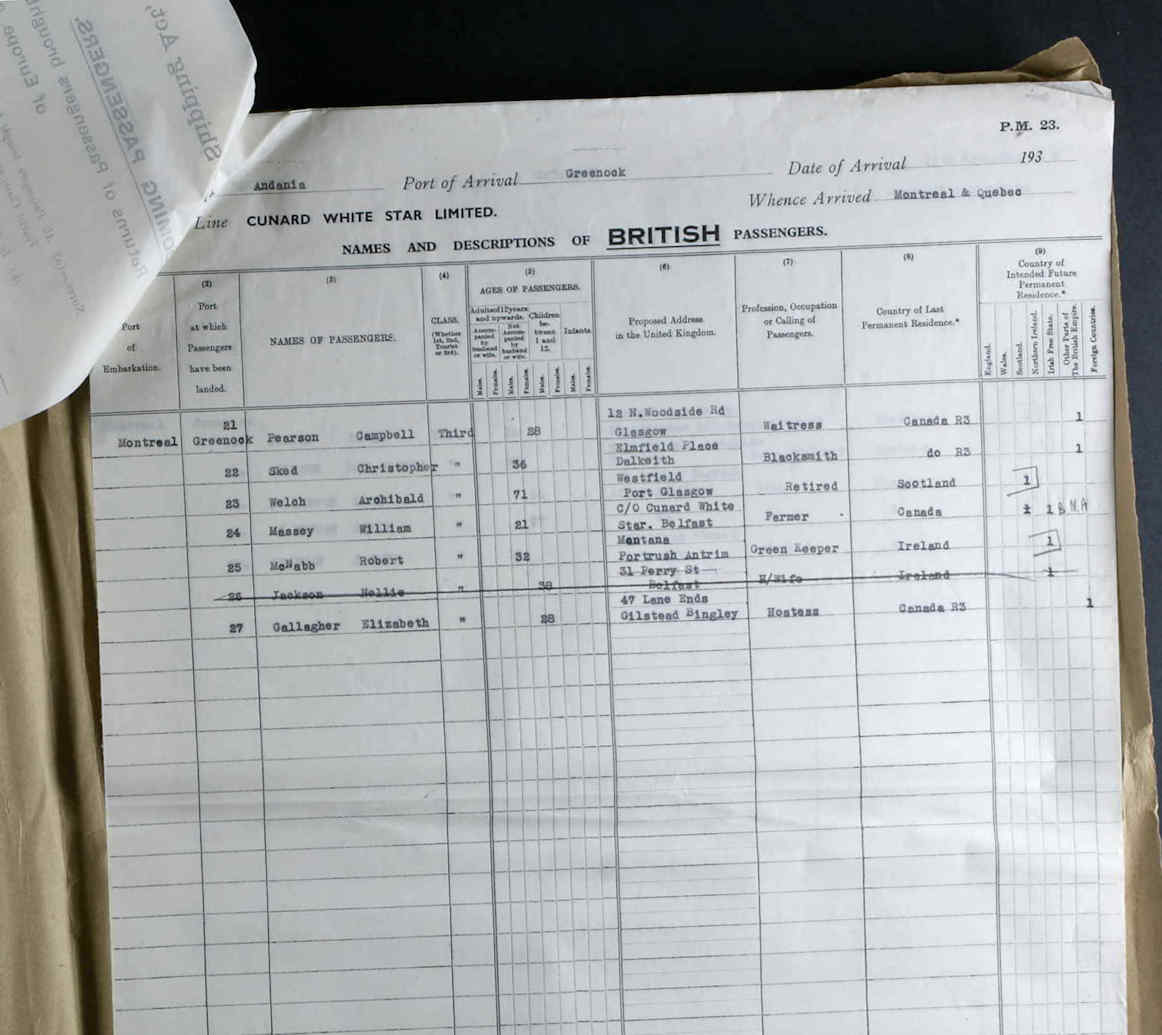 Shipping Act,
PASSENGERS.
Returns of Passengers brought
of Europe
P.M. 23.
Andania Port of Arrival Greenock Date of Arrival 193
Line CUNARD WHITE STAR LIMITED. Whence Arrived Montreal & Quebec
NAMES AND DESCRIPTIONS OF BRITISH PASSENGERS.
(2) (3) (4) (5) (6) (7) (8) (9)
Port of Embarkation.
Port at which Passengers have been landed.
NAMES OF PASSENGERS.
CLASS. (Whether 1st, 2nd, Tourist or 3rd).
AGES OF PASSENGERS.
Adults of 12 years and upwards.
Accompanied by husband or wife.
Not accompanied by husband or wife.
Children between 1 and 12.
Infants
Males. Females. Males. Females. Males. Females. Males. Females.
Proposed Address in the United Kingdom.
Profession, Occupation or Calling of Passengers.
Country of Last Permanent Residence.*
Country of Intended Future Permanent Residence.*
England. Wales. Scotland. Northern Ireland. Irish Free State. Other Parts of The British Empire. Foreign Countries.
21 12 N.Woodside Rd
Montreal Greenock Pearson Campbell Third 28 Glasgow Waitress Canada R3 1
Elmfield Place
22 Sked Christopher " 36 Dalkeith Blacksmith do R3 1
Westfield
23 Welch Archibald " 71 Port Glasgow Retired Scotland 1
C/O Cunard White
24 Massey William " 21 Star. Belfast Farmer Canada 1 1 B N.A
Montana
25 McNabb Robert " 32 Portrush Antrim Green Keeper Ireland 1
31 Perry St
26 Jackson Nellie " 38 Belfast H/Wife Ireland 1
47 Lane Ends
27 Gallagher Elizabeth " 28 Gilstead Bingley Hostess Canada R3 1